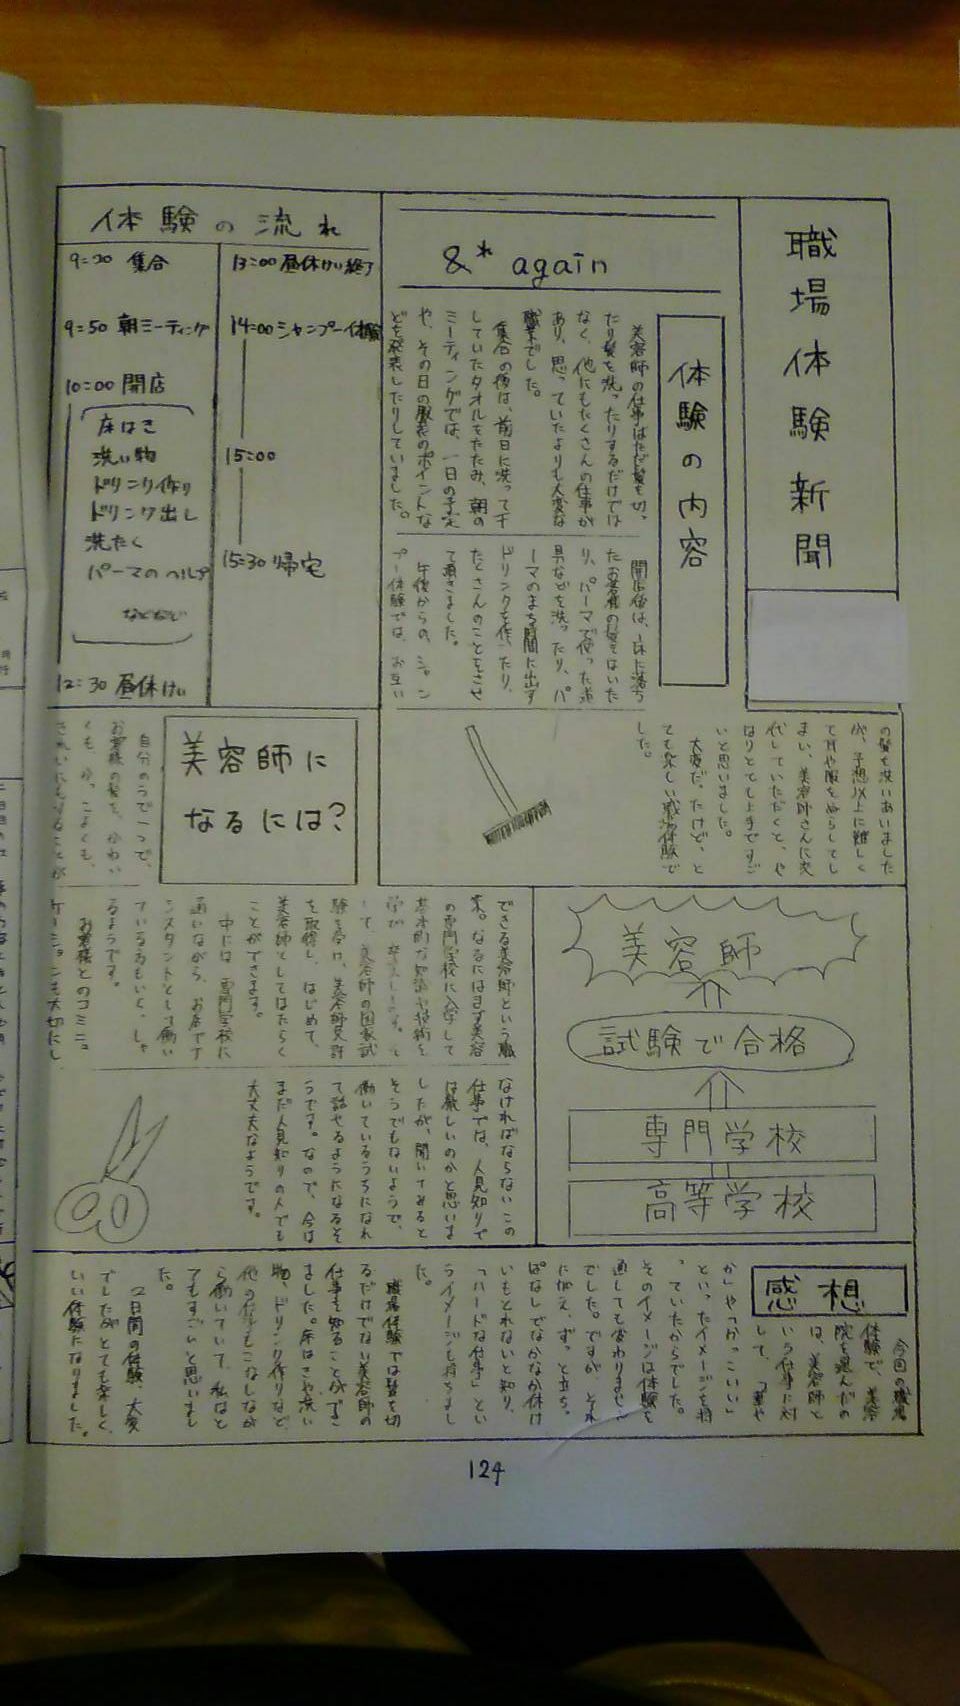 職場体験新聞
&れ again
体験の内容
美容師の仕事はただ髪を切っ
たり髪を洗ったりするだけでは
なく、他にもたくさんの仕事が
あり、思っていたよりも大変な
職業でした。
集合の後は、前日に洗って干
していたタオルをたたみ、朝の
ミーティングでは、一日の予定
や、その日の服装のポイントな
どを発表したりしていました。
開店後は、床に落ち
たお客様の髪をはいた
り、パーマで使った道
具などを洗ったり、パ
ーマのまち時間に出す
ドリンクを作ったり、
たくさんのことをさせ
て頂きました。
午後からの、シャン
プー体験では、お互い
の髪を洗いあいました
が、予想以上に難しく
て耳や服をぬらしてし
まい、美容師さんに交
代していただくと、や
はりとても上手ですご
いと思いました。
大変だったけど、と
ても楽しい職場体験で
した。
体験の流れ
9:20 集合
9:50 朝ミーティング
10:00 開店
床はき
洗い物
ドリンク作り
ドリンク出し
洗たく
パーマのヘルプ
などなど
12:30 昼休けい
13:00 昼休けい終了
14:00 シャンプー体験
15:00
15:30 帰宅
美容師に
なるには?
自分のうで一つで、
お客様の髪を、かわい
くも、かっこよくも、
きれいにもすることが
できる美容師という職
業。なるにはまず美容
の専門学校に入学して
基本的な知識や技術を
学び、卒業します。そ
して、美容師の国家試
験を受け、美容師免許
を取得し、はじめて、
美容師としてはたらく
ことができます。
中には、専門学校に
通いながら、お店でア
シスタントとして働い
ている方もいらっしゃ
るようです。
お客様とのコミニュ
ケーションを大切にし
なければならないこの
仕事では、人見知りで
は厳しいのかと思いま
したが、聞いてみると
そうでもないようで、
働いているうちになれ
て話せるようになるそ
うです。なので、今は
まだ人見知りの人でも
大丈夫なようです。
美容師
試験で合格
専門学校
高等学校
感想
今回の職場
体験で、美容
院を選んだの
は、美容師と
いう仕事に対
して、「華や
か」や「かっこいい」
といったイメージを持
っていたからでした。
そのイメージは体験を
通しても変わりません
でした。ですが、それ
にがえ、ずっと立ちっ
ぱなしでなかなか休け
いもとれないと知り、
「ハードな仕事」とい
うイメージも持ちまし
た。
職場体験では髪を切
るだけでない美容師の
仕事を知ることができ
ました。床はきや洗い
物、ドリンク作りなど、
他の仕事もこなしなが
ら働いていて、私はと
てもすごいと思いまし
た。
2日間の体験、大変
でしたがとても楽しく、
いい体験になりました。
124